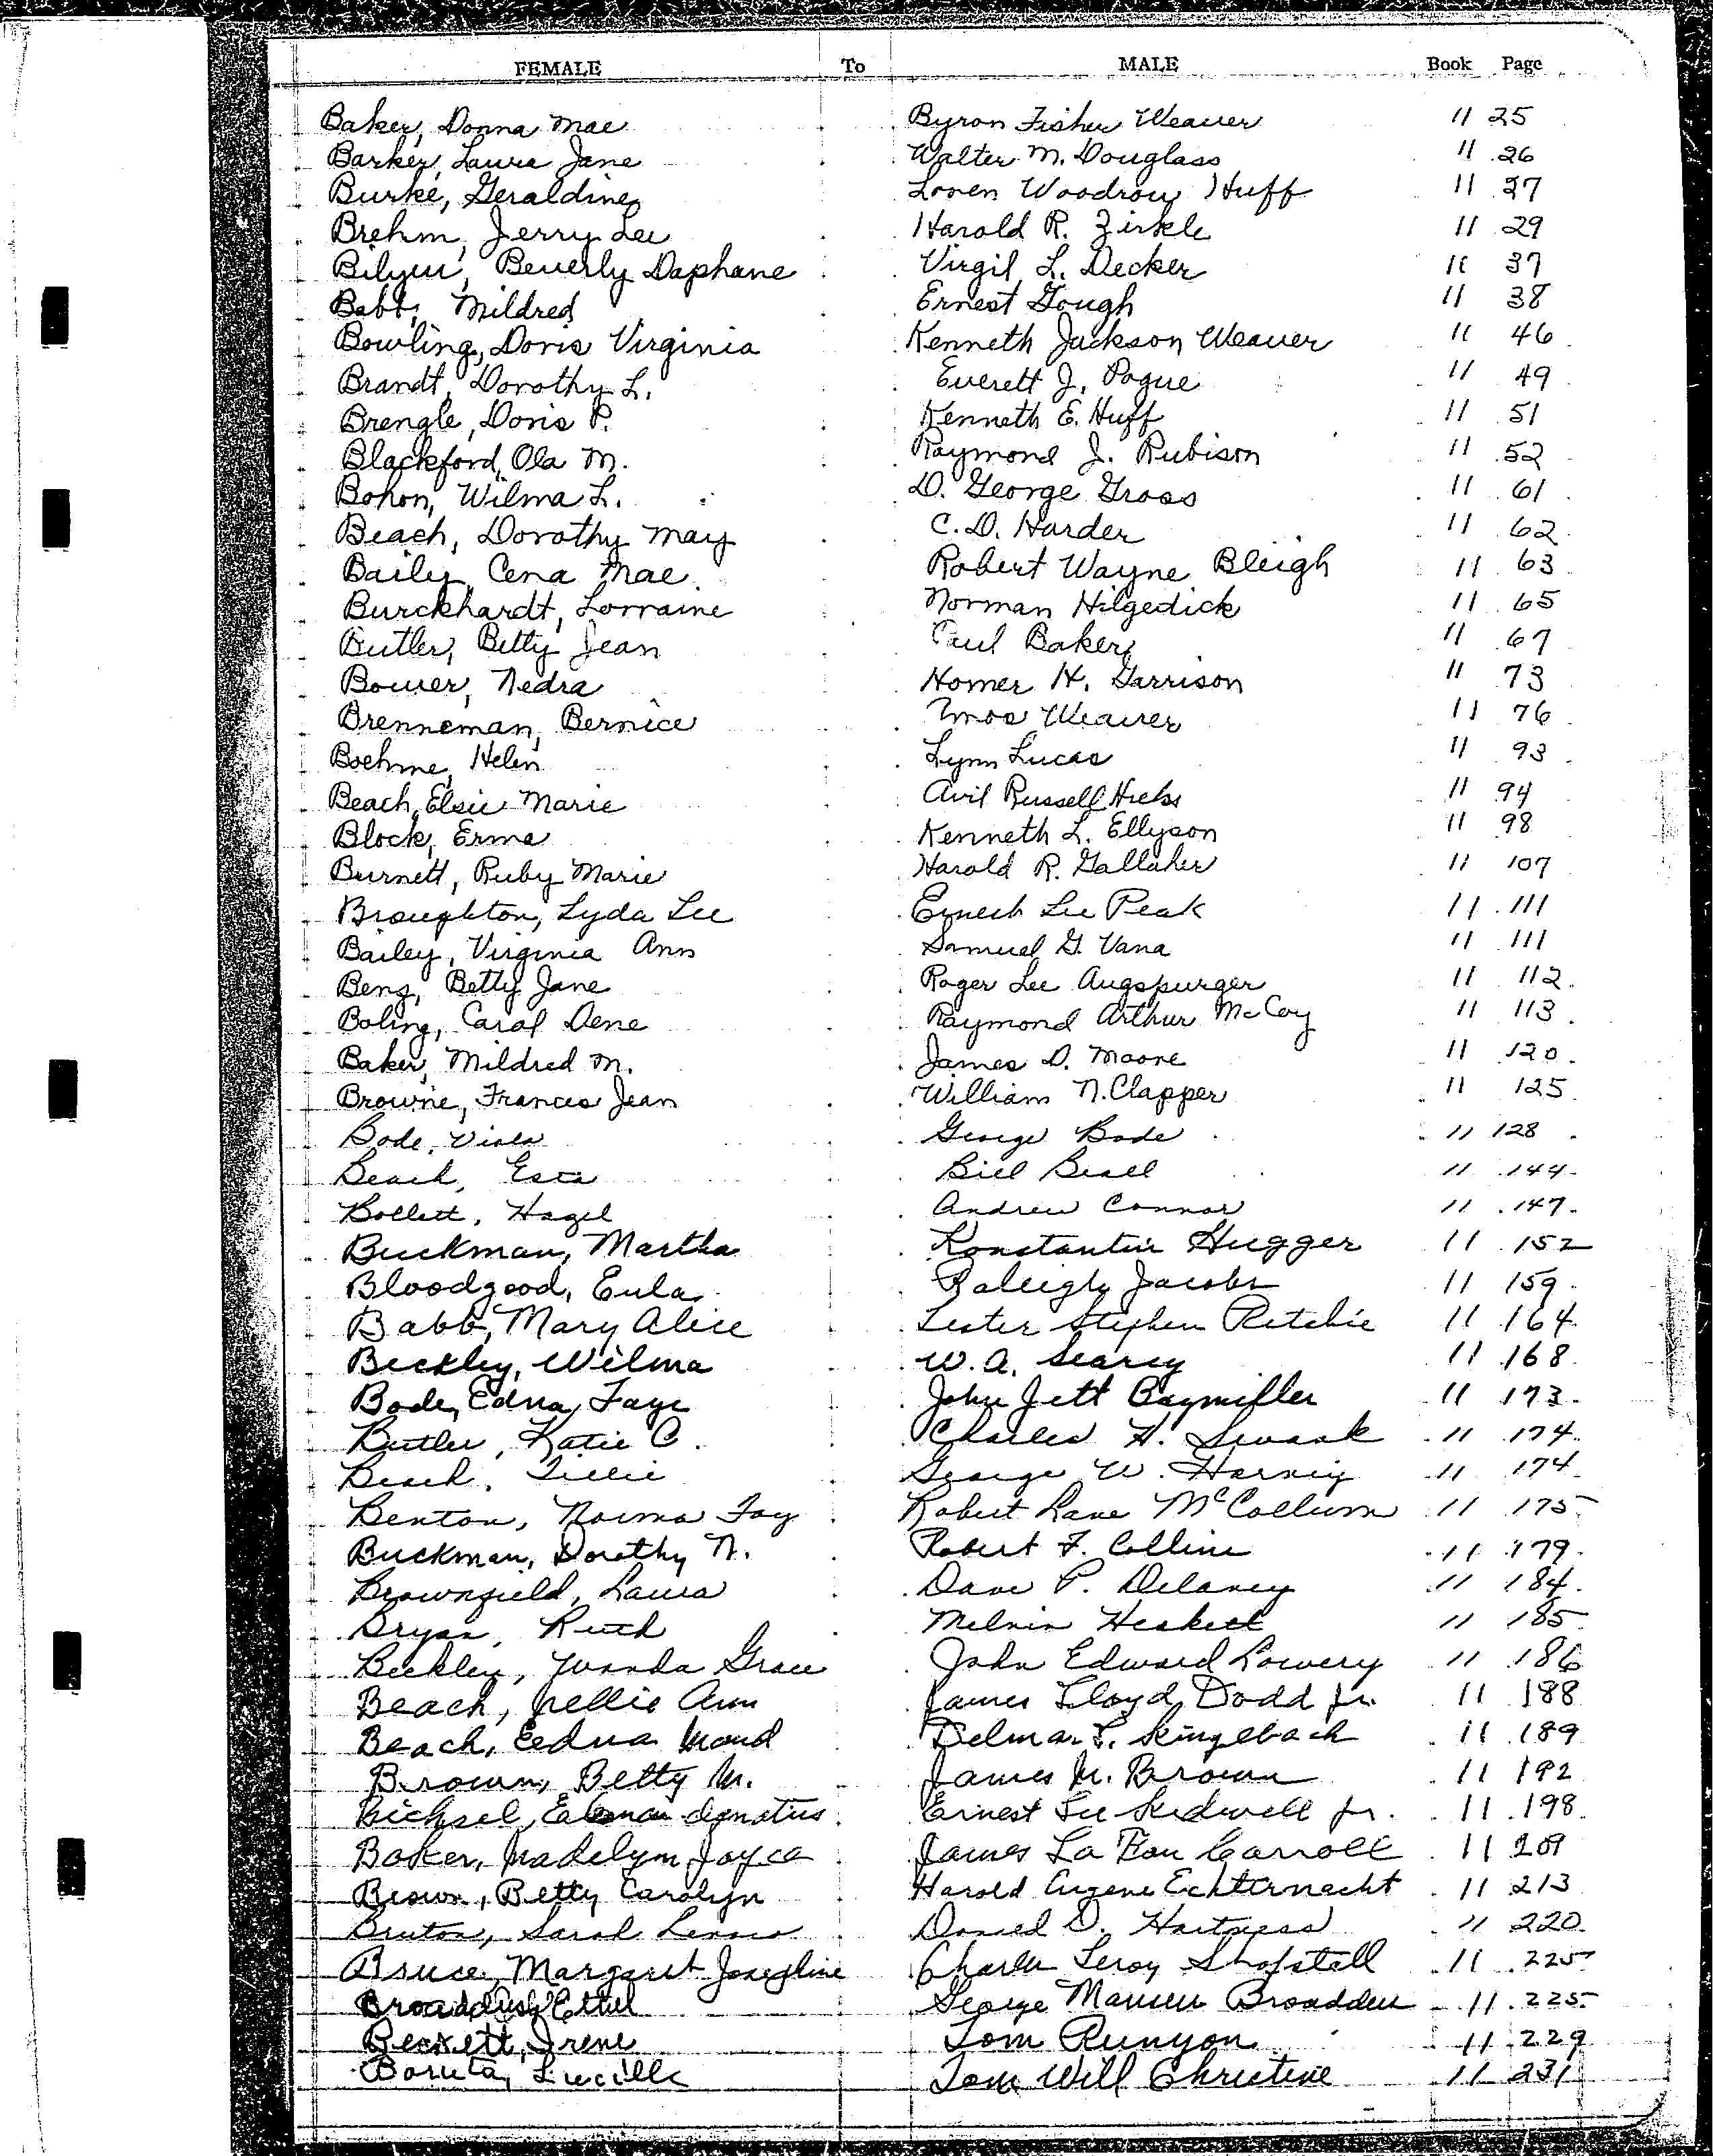 FEMALE To MALE Book Page
Baker, Donna Mae Byron Fisher Weaver 11 25
Barker, Laura Jane Walter M. Douglass 11 26
Burke, Geraldine Loren Woodrow Huff 11 27
Brehm, Jerry Lee Harold R. Zirkle 11 29
Bilyeu, Beverly Daphane Virgil L. Decker 11 37
Babb, Mildred Ernest Gough 11 38
Bowling, Doris Virginia Kenneth Jackson Weaver 11 46
Brandt, Dorothy L. Everett J. Pogue 11 49
Brengle, Doris P. Kenneth E. Huff 11 51
Blackford, Ola M. Raymond J. Rubison 11 52
Bohon, Wilma L. D. George Gross 11 61
Beach, Dorothy May C. D. Harder 11 62
Baily, Cena Mae Robert Wayne Bleigh 11 63
Burckhardt, Lorraine Norman Hilgedick 11 65
Butler, Betty Jean Paul Baker 11 67
Bower, Nedra Homer H. Garrison 11 73
Brenneman, Bernice Amos Weaver 11 76
Boehme, Helen Lynn Lucas 11 93
Beach, Elsie Marie Avil Russell 11 94
Block, Erma Kenneth L. Ellyson 11 98
Burnett, Ruby Marie Harold R. Gallaher 11 107
Broughton, Lyda Lee Ernest Lee Peak 11 111
Bailey, Virginia Ann Samuel G. Vana 11 111
Benz, Betty Jane Roger Lee Augspurger 11 112
Boling, Carol Dene Raymond Arthur McCoy 11 113
Baker, Mildred M. James D. Moore 11 120
Browne, Frances Jean William N. Clapper 11 125
Bode, Viola George Bode 11 128
Beach, Esta Bill Beall 11 144
Bollett, Hazel Andrew Connor 11 147
Buckman, Martha Konstantin Hugger 11 152
Bloodgood, Eula Raleigh Jacobs 11 159
Babb, Mary Alice Lester Stephen Ritchie 11 164
Beckley, Wilma W. A. Searcy 11 168
Bode, Edna Faye John Jett Baymiller 11 173
Butler, Katie C. Charles H. Swank 11 174
Beach, Tillie George W. 11 174
Benton, Norma Fay Robert Lane McCollum 11 175
Buckman, Dorothy N. Robert F. Collins 11 179
Brownfield, Laura Dave P. Delaney 11 184
Bryan, Ruth Melvin Heskett 11 185
Beckley, Wanda Grace John Edward Lowery 11 186
Beach, Nellie Ann James Lloyd Dodd Jr. 11 188
Beach, Edna Maud Delmar L. Ringelbach 11 189
Brown, Betty M. James M. Brown 11 192
Bichsel, Ignatius Ernest Lee Kidwell Jr. 11 198
Baker, Madelyn Joyce James La Fon Carroll 11 201
Brown, Betty Carolyn Harold Eugene Echternacht 11 213
Bruton, Sarah Lenora D. Hartness 11 220
Bruce, Margaret Josephine Charles Leroy Shopstall 11 225
Broaddus, Ethel George Broaddus 11 225
Beckett, Irene Tom Runyon 11 229
Boruta, Lucille Tom Will Christine 11 231